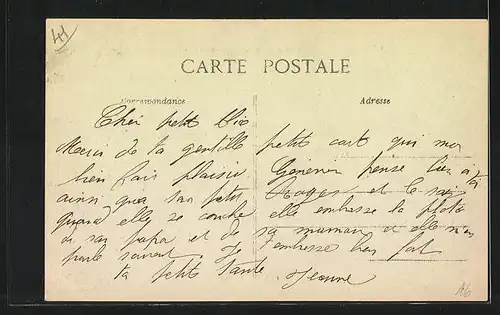 44
CARTE POSTALE
Correspondance
Adresse
Cher petit
Merci de ta gentille petite cart qui m'a
bien fais plaisir Geneviev pense bien à toi
ainsi qua ton petit et le soir
quand elle se couche elle embrasse la photo
de son papa et de sa maman et elle m'en
parle souvent. Je t'embrasse bien fort
ta petite tante Jeanne
A6